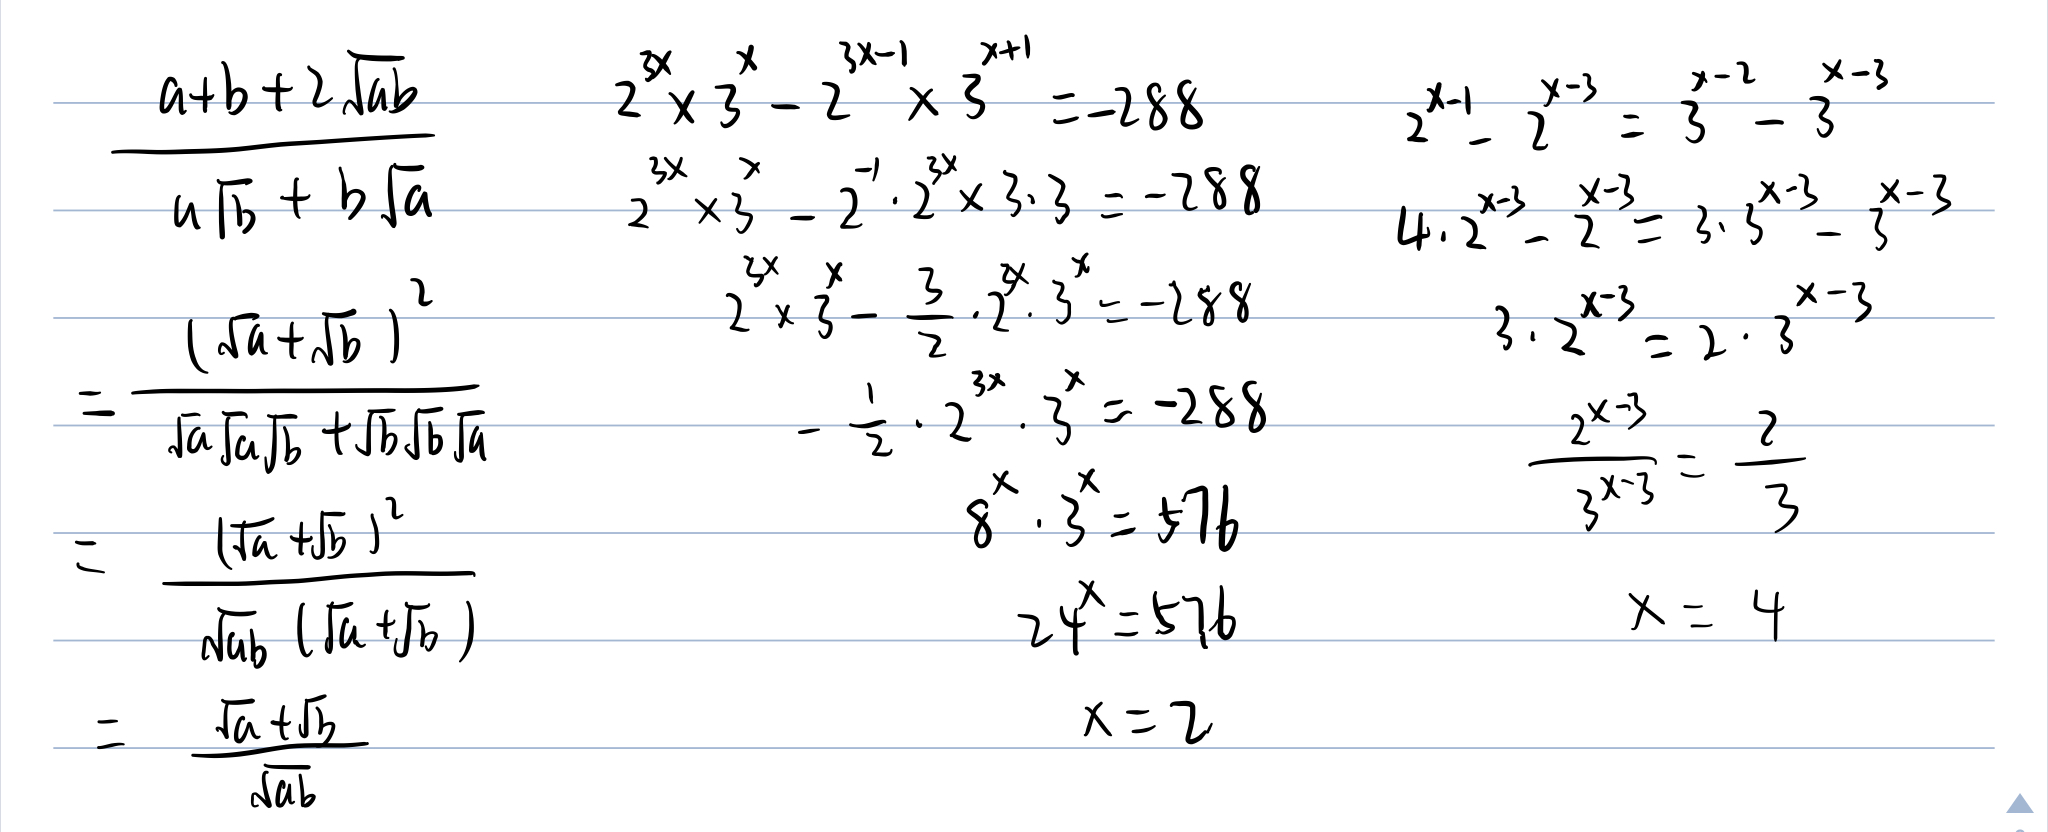 (a+b+2√ab)/(a√b + b√a)
= (√a+√b)²/(√a√a√b + √b√b√a)
= (√a+√b)²/(√ab (√a+√b))
= (√a+√b)/√ab
2^(3x) × 3^x − 2^(3x−1) × 3^(x+1) = −288
2^(3x) × 3^x − 2^(−1) · 2^(3x) × 3·3 = −288
2^(3x) × 3^x − 3/2 · 2^(3x) · 3^x = −288
− 1/2 · 2^(3x) · 3^x = −288
8^x · 3^x = 576
24^x = 576
x = 2
2^(x−1) − 2^(x−3) = 3^(x−2) − 3^(x−3)
4·2^(x−3) − 2^(x−3) = 3·3^(x−3) − 3^(x−3)
3·2^(x−3) = 2·3^(x−3)
2^(x−3)/3^(x−3) = 2/3
x = 4